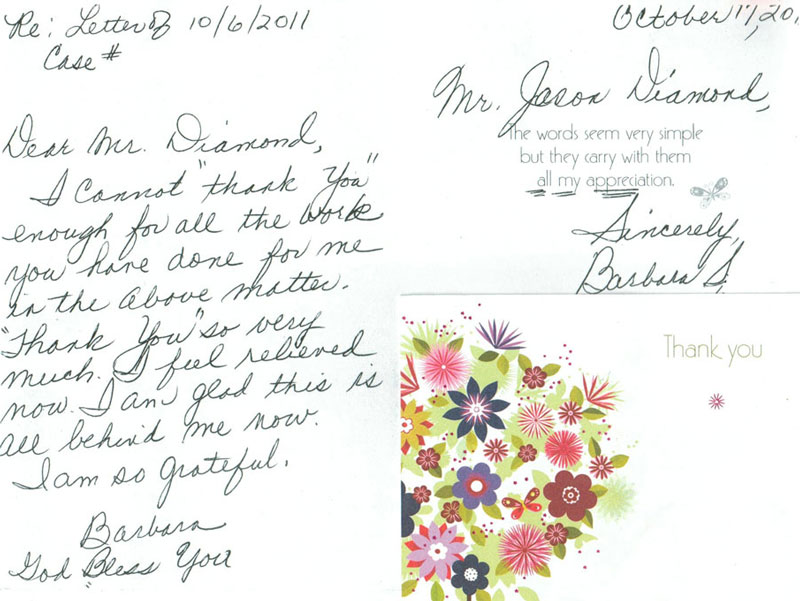 Re: Letter of 10/6/2011
Case #
Dear Mr. Diamond,
I cannot "thank you"
enough for all the work
you have done for me
in the above matter.
"Thank You" so very
much. I feel relieved
now. I am glad this is
all behind me now.
I am so grateful.
Barbara
God Bless You
October 17, 20
Mr. Jason Diamond,
The words seem very simple
but they carry with them
all my appreciation.
Sincerely,
Barbara S.
Thank you